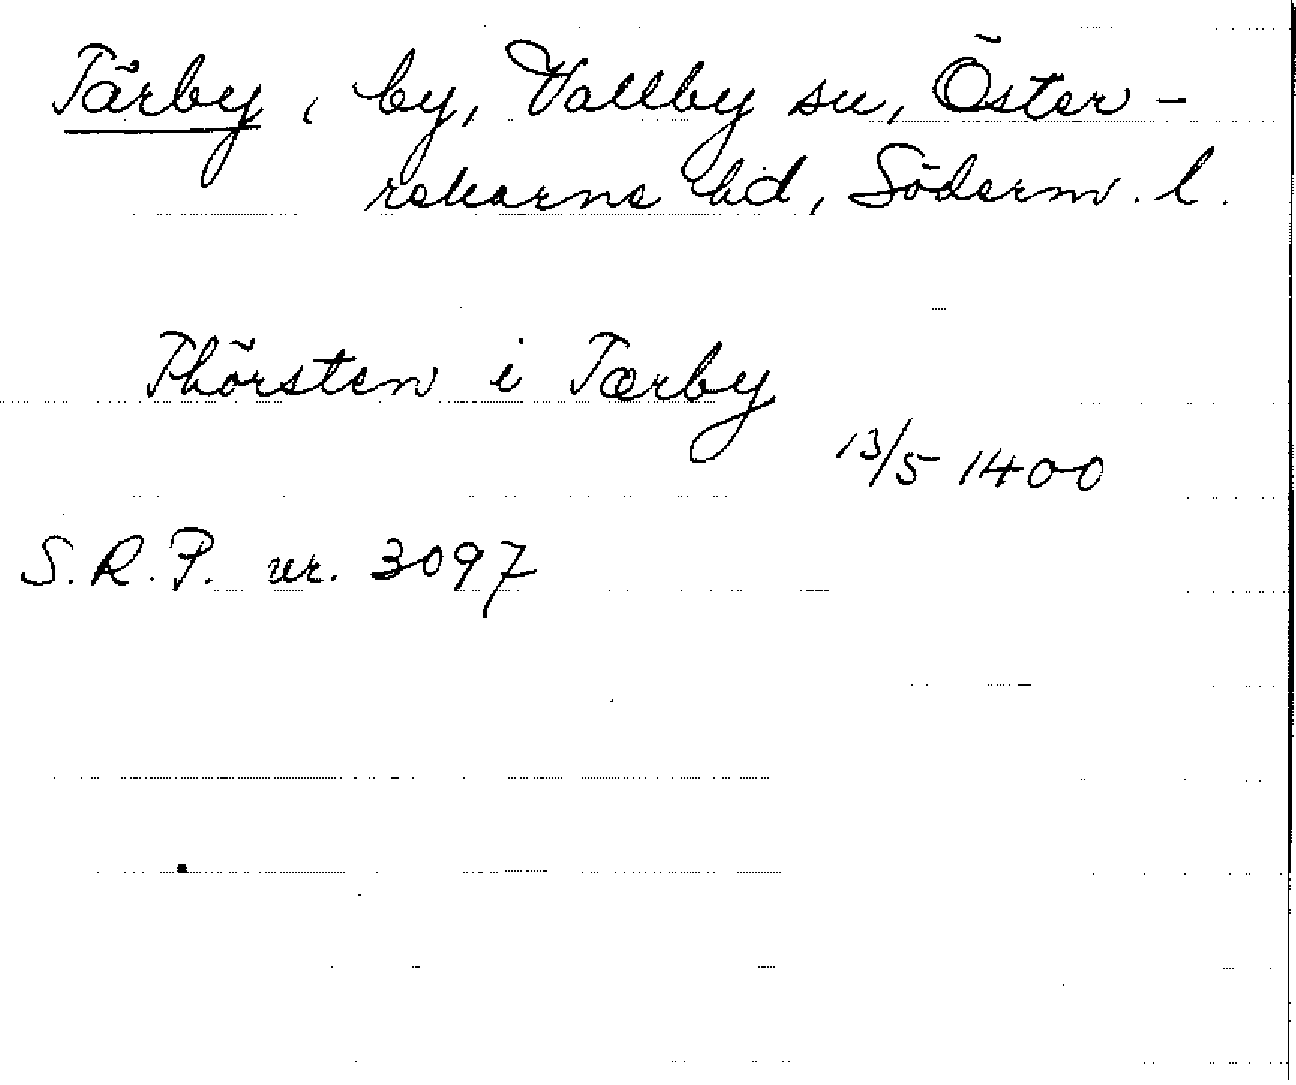 Tärby, by, Vallby sn, Öster-
rekarne hd, Söderm. l.
Thörsten i Tærby
13/5 1400
S.R.P. nr. 3097